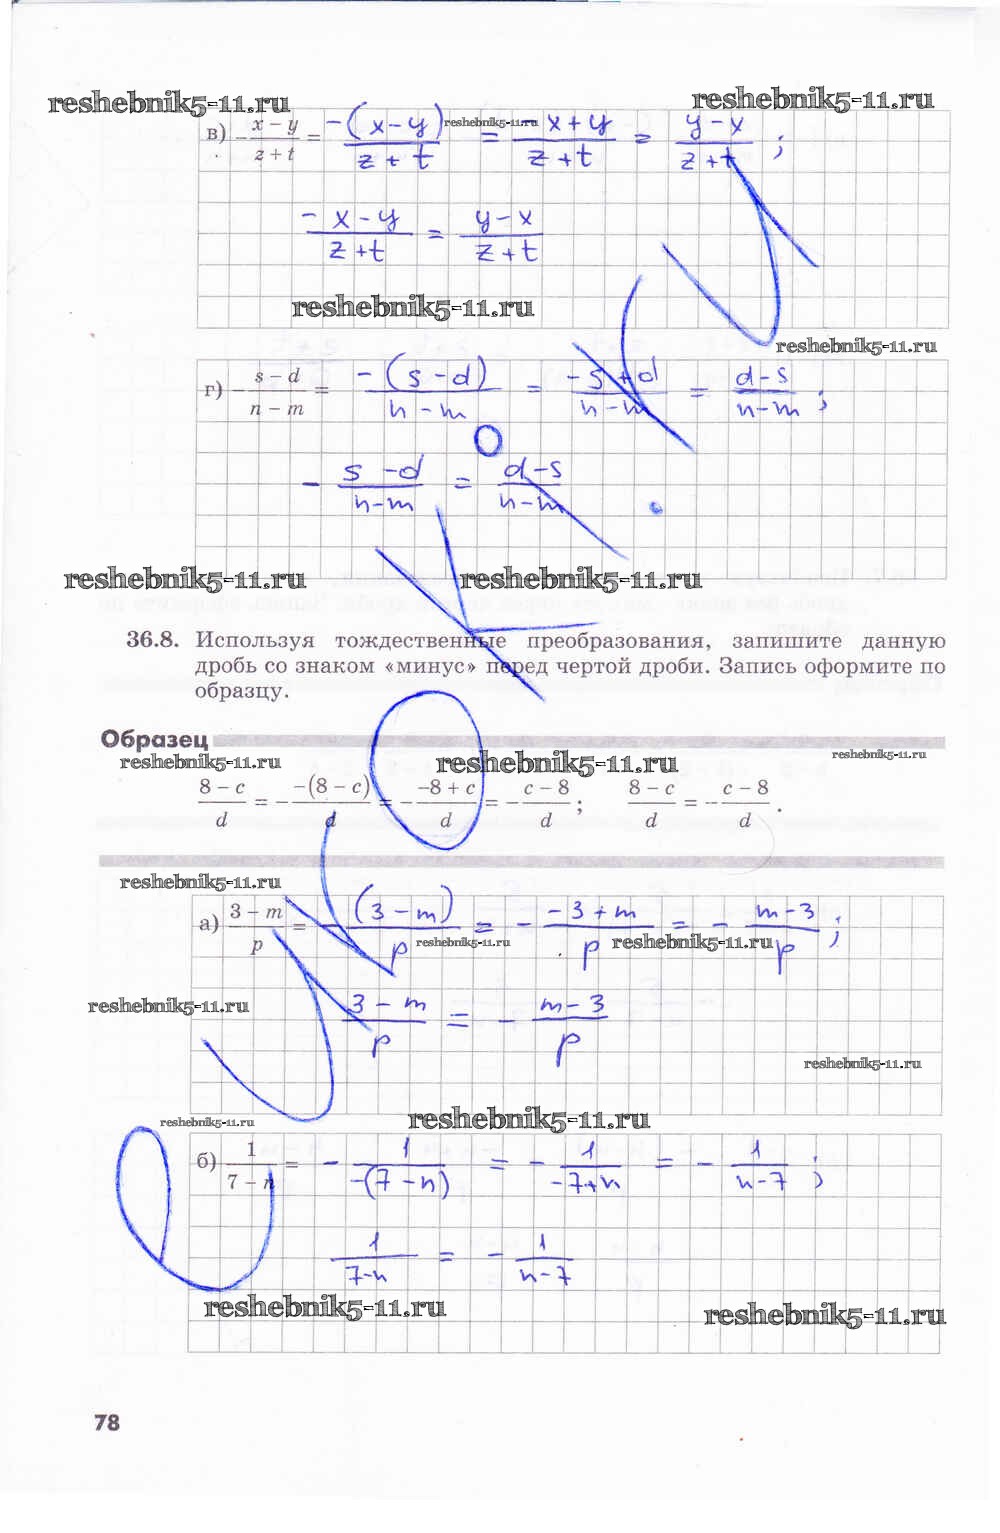 reshebnik5-11.ru reshebnik5-11.ru
в) -(x - y)/(z + t) = (-(x-y))/(z + t) reshebnik5-11.ru = (-x+y)/(z+t) = (y-x)/(z+t) ;
(-x-y)/(z+t) = (y-x)/(z+t)
reshebnik5-11.ru
reshebnik5-11.ru
г) -(s - d)/(n - m) = (-(s-d))/(n-m) = (-s+d)/(n-m) = (d-s)/(n-m) ;
- (s-d)/(n-m) = (d-s)/(n-m)
reshebnik5-11.ru reshebnik5-11.ru
36.8. Используя тождественные преобразования, запишите данную
дробь со знаком «минус» перед чертой дроби. Запись оформите по
образцу.
Образец
reshebnik5-11.ru reshebnik5-11.ru reshebnik5-11.ru
(8 - c)/d = -(-(8 - c))/d = -(-8 + c)/d = -(c - 8)/d ; (8 - c)/d = -(c - 8)/d .
reshebnik5-11.ru
а) (3 - m)/p = - (3-m)/p = - (-3+m)/p = - (m-3)/p ;
reshebnik5-11.ru reshebnik5-11.ru
reshebnik5-11.ru
(3-m)/p = - (m-3)/p
reshebnik5-11.ru
reshebnik5-11.ru reshebnik5-11.ru
б) 1/(7 - n) = - 1/(-(7-n)) = - 1/(-7+n) = - 1/(n-7) ;
1/(7-n) = - 1/(n-7)
reshebnik5-11.ru reshebnik5-11.ru
78